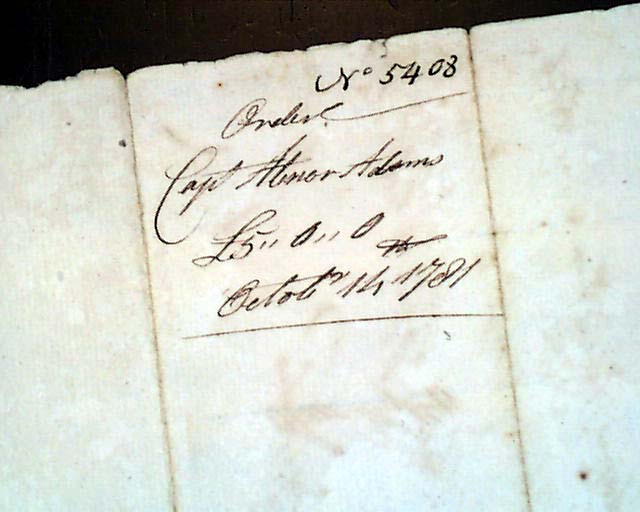 No 5408
Order
Capt Abnor Adams
£5,, 0,, 0
Octobr 14th 1781